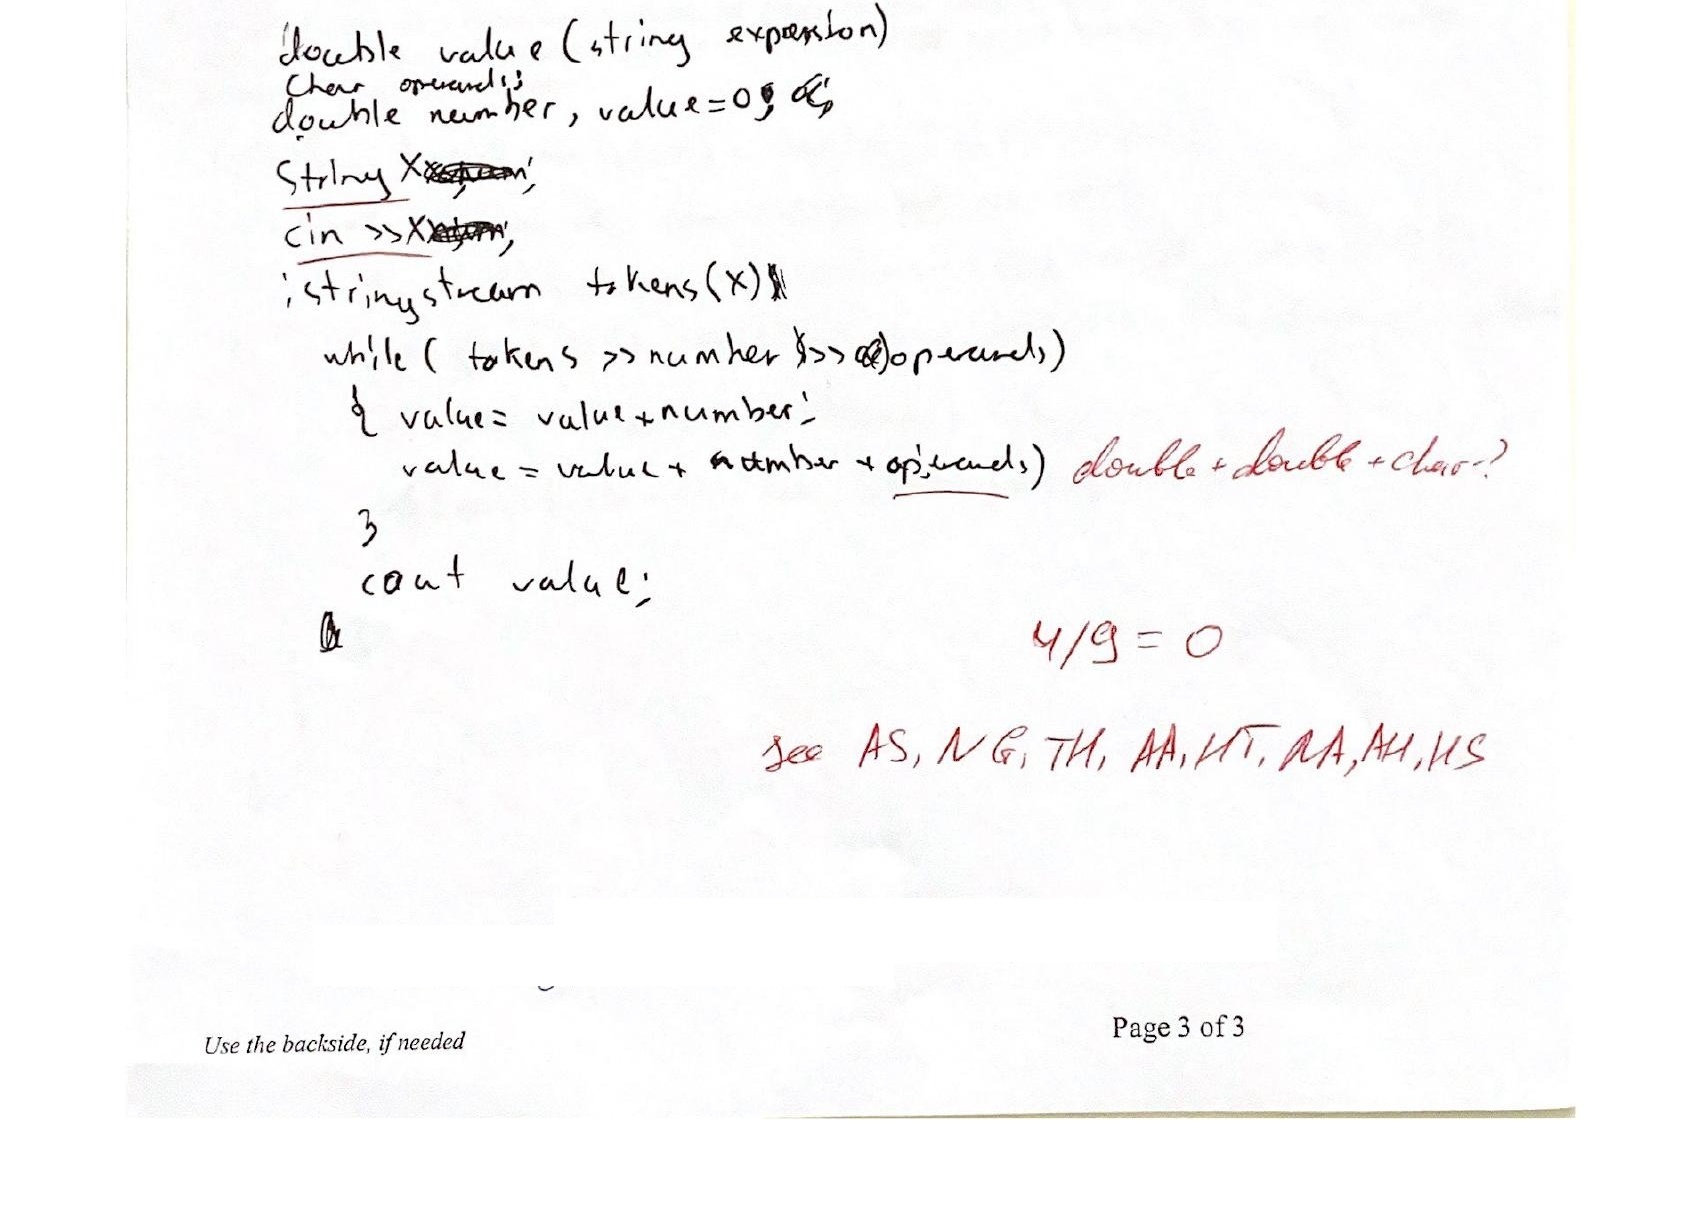 double value (string expression)
char operands;
double number, value=0;
String X;
cin >>X;
istringstream tokens(X)
while( tokens >>number >> operands)
{ value= value+number;
value = value+ number + operands) double + double + char-?
}
cout value;
4/9 = 0
see AS, NG, TH, AA, HT, RA, AH, HS
Use the backside, if needed
Page 3 of 3